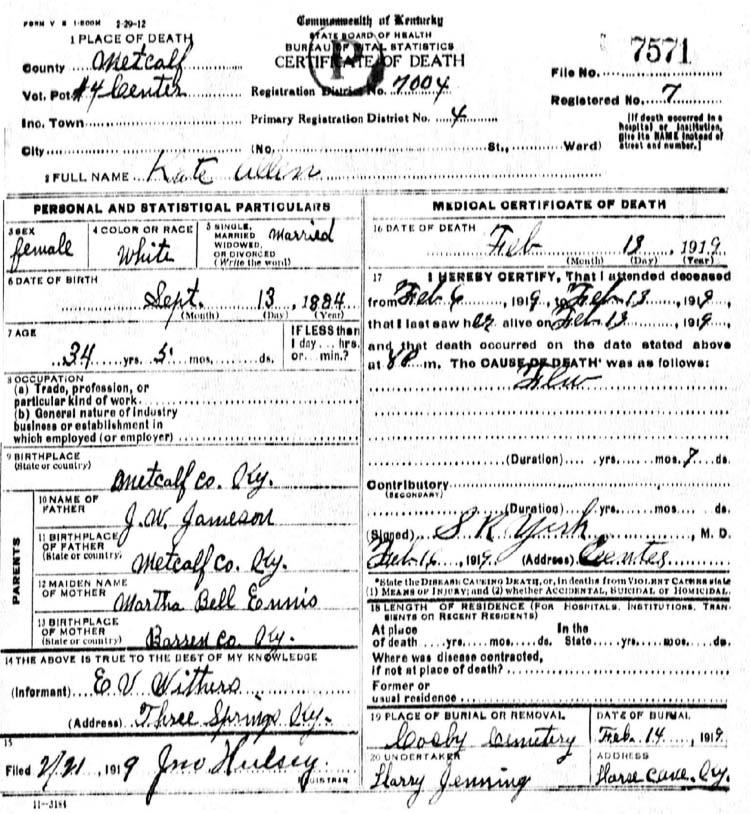 FORM V S 1-500M 2-29-12
Commonwealth of Kentucky
STATE BOARD OF HEALTH
BUREAU OF VITAL STATISTICS
CERTIFICATE OF DEATH
1 PLACE OF DEATH
County Metcalf
Vot. Pct #4 Center
Inc. Town
City (No. St., Ward)
Registration District No. 7004
Primary Registration District No. 4
File No. 7571
Registered No. 7
[If death occurred in a
hospital or institution,
give its NAME instead of
street and number.]
2 FULL NAME Kate Allen
PERSONAL AND STATISTICAL PARTICULARS
3 SEX
female
4 COLOR OR RACE
White
5 SINGLE,
MARRIED Married
WIDOWED,
OR DIVORCED
(Write the word)
6 DATE OF BIRTH
Sept. 13, 1884
(Month) (Day) (Year)
7 AGE
34 yrs. 5 mos. ds.
IF LESS than
1 day... hrs.
or... min.?
8 OCCUPATION
(a) Trade, profession, or
particular kind of work
(b) General nature of industry
business or establishment in
which employed (or employer)
9 BIRTHPLACE
(State or country)
Metcalf Co. Ky.
PARENTS
10 NAME OF
FATHER
J. W. Jameson
11 BIRTHPLACE
OF FATHER
(State or country)
Metcalf Co. Ky.
12 MAIDEN NAME
OF MOTHER
Martha Bell Ennis
13 BIRTHPLACE
OF MOTHER
(State or country) Barren Co. Ky.
14 THE ABOVE IS TRUE TO THE BEST OF MY KNOWLEDGE
(Informant) E V Withers
(Address) Three Springs Ky.
15
Filed 2/21, 1919 Jno Hulsey
REGISTRAR
11-3184
MEDICAL CERTIFICATE OF DEATH
16 DATE OF DEATH
Feb 13, 1919
(Month) (Day) (Year)
17 I HEREBY CERTIFY, That I attended deceased
from Feb 6, 1919, to Feb 13, 1919,
that I last saw her alive on Feb 13, 1919,
and that death occurred on the date stated above
at m. The CAUSE OF DEATH* was as follows:
Flu
(Duration) yrs. mos. 7 ds.
Contributory
(SECONDARY)
(Duration) yrs. mos. ds.
(Signed) S R York, M. D.
Feb 16, 1919 (Address) Center
*State the DISEASE CAUSING DEATH, or, in deaths from VIOLENT CAUSES state
(1) MEANS OF INJURY; and (2) whether ACCIDENTAL, SUICIDAL OR HOMICIDAL.
18 LENGTH OF RESIDENCE (FOR HOSPITALS, INSTITUTIONS, TRAN-
SIENTS OR RECENT RESIDENTS)
At place In the
of death yrs. mos. ds. State yrs. mos. ds.
Where was disease contracted,
if not at place of death?
Former or
usual residence
19 PLACE OF BURIAL OR REMOVAL
Cosby Cemetery
DATE OF BURIAL
Feb. 14, 1919
20 UNDERTAKER
Harry Jenning
ADDRESS
Horse Cave, Ky.